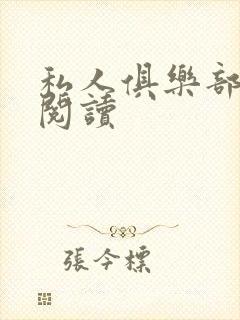 私人俱樂部
閱讀
張今標